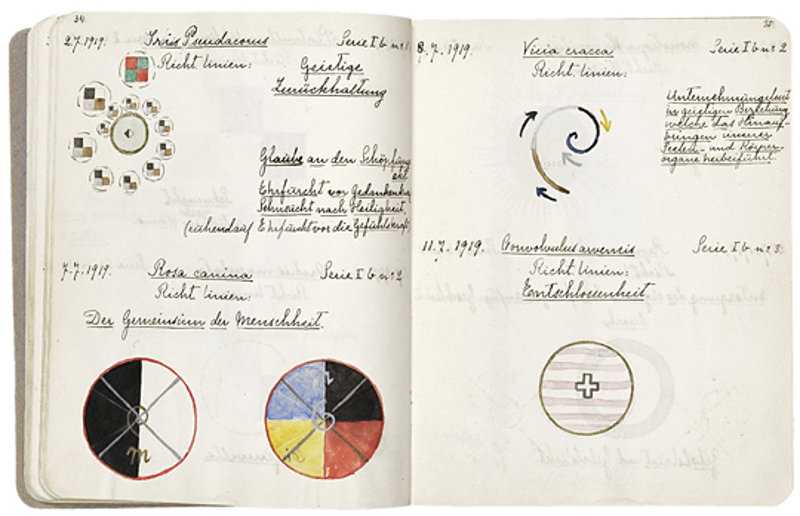 34.
2.7.1919. Iris Pseudacorus Serie I b nr 1
Richt linien: Geistige
Zurückhaltung
Glaube an den Schöpfung
Ehrfurcht vor Gedankenkraft
Sehnsucht nach Heiligkeit.
(ruhend auf Ehrfurcht vor die Gefühlskraft)
7.7.1919. Rosa canina Serie I b nr 2
Richt linien:
Der Gemeinsinn der Menschheit.
m
35.
8.7.1919. Vicia cracca Serie I b nr 2
Richt. linien:
Unternehmungslust
in geistigen Beziehung
welche das Hinauf-
bringen unserer
Seelen- und Körper-
organe herbeiführt.
11.7.1919. Convolvulus arvensis Serie I b nr 3
Richt linien:
Emtschlossenheit